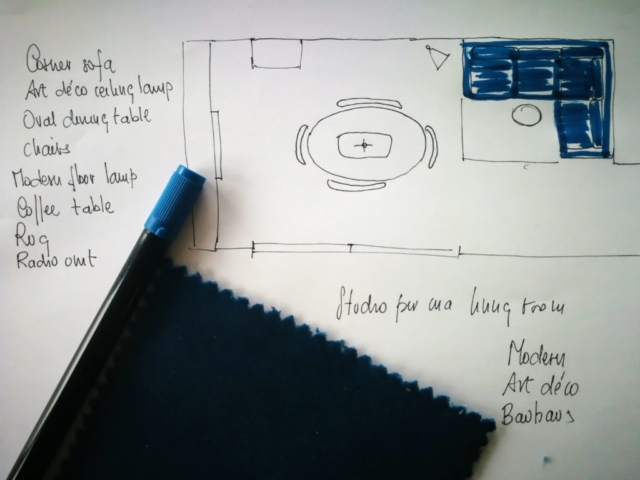 Corner sofa
Art déco ceiling lamp
Oval dining table
Chairs
Modern floor lamp
Coffee table
Rug
Radio unit
Studio per una living room
Modern
Art déco
Bauhaus